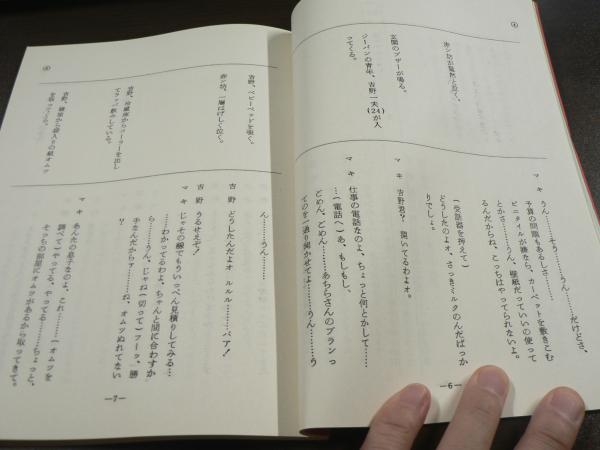 ④
赤ン坊が猛然と泣く。
玄関のブザーが鳴る。
ジーパンの青年、吉野一夫(24)が入
ってくる。
マキ うん……そう……うん……だけどさ、
予算の問題もあるしさ……
ビニタイルが嫌なら、カーペットを敷きこむ
とかさ……うん、壁紙だっていいの使って
るんだからね、こっちはやってられないよ。
(受話器を押えて)
どうしたのよォ、さっきミルクのんだばっか
りでしょ。
マキ 吉野君? 開いてるわよォ。
マキ 仕事の電話なのよ、ちょっと何とかして……
…(電話へ)あ、もしもし、
ごめん、ごめん……あちらさんのプランっ
てのを一通り聞かせてよ……うん……う
—6—
④
吉野、ベビーベッドを覗く。
赤ン坊、一層はげしく泣く。
吉野、冷蔵庫からコーラーを出し
てラッパ飲みしている。
吉野、隣室から袋入りの紙オムツ
を取ってくる。
ん……うん……
吉野 どうしたんだよォ ルルル……バア!
吉野 うるせえぞ!
マキ じゃその線でもういっぺん見積りしてみる…
…わかってるわよ、ちゃんと間に合わすか
ら……うん、じゃね(切って)フーッ、勝
手なんだからァ……ね、オムツぬれてない
?
マキ あんたの息子なのよ、これ……(オムツを
調べて)やってる、やってる……ちょっと、
そっちの部屋にオムツがあるから取ってきて。
—7—